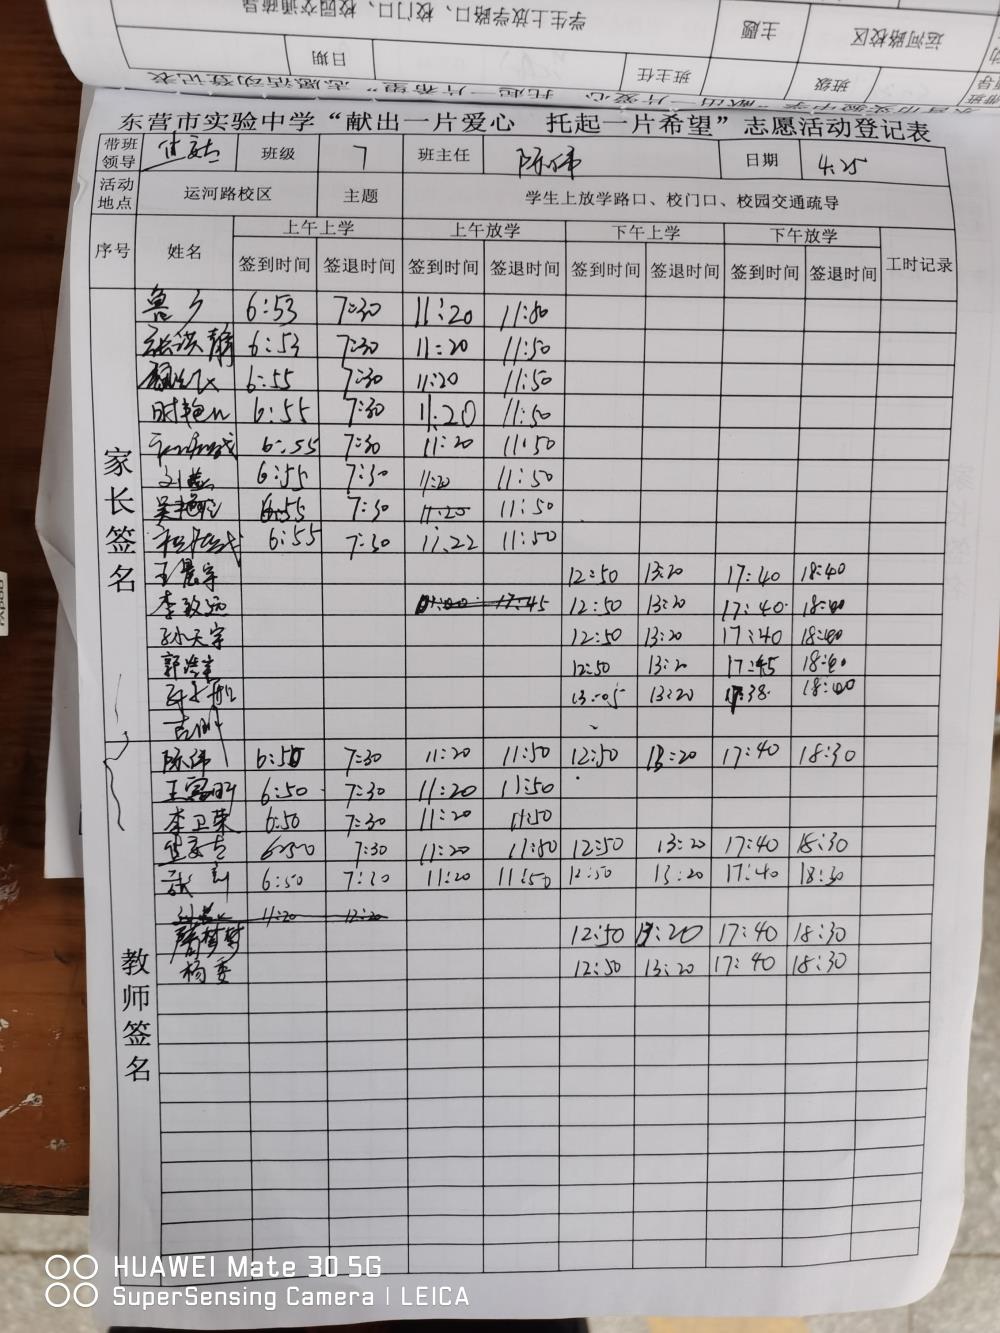 学生上放学路口、校门口、校园交通疏导
主题
运河路校区
日期
班主任
班级
东营市实验中学“献出一片爱心 托起一片希望”志愿活动登记表
带班领导 班级 7 班主任 陈伟 日期 4.25
活动地点 运河路校区 主题 学生上放学路口、校门口、校园交通疏导
序号 姓名 上午上学 上午放学 下午上学 下午放学 工时记录
签到时间 签退时间 签到时间 签退时间 签到时间 签退时间 签到时间 签退时间
家长签名
6:53 7:30 11:20 11:50
静 6:53 7:30 11:20 11:50
6:55 7:30 11:20 11:50
时艳 6:55 7:30 11:20 11:50
6:55 7:30 11:20 11:50
刘 6:55 7:30 11:20 11:50
吴艳 6:55 7:30 11:20 11:50
6:55 7:30 11:22 11:50
王晨宇 12:50 13:20 17:40 18:40
李致远 17:45 12:50 13:20 17:40 18:40
孙天宇 12:50 13:20 17:40 18:40
郭 12:50 13:20 17:45 18:40
13:05 13:20 17:38 18:00
陈伟 6:50 7:30 11:20 11:50 12:50 13:20 17:40 18:30
王 明 6:50 7:30 11:20 11:50
李卫荣 6:50 7:30 11:20 11:50
6:50 7:30 11:20 11:50 12:50 13:20 17:40 18:30
张 6:50 7:30 11:20 11:50 12:50 13:20 17:40 18:30
11:20 12:20
梦 12:50 13:20 17:40 18:30
杨 12:50 13:20 17:40 18:30
教师签名
HUAWEI Mate 30 5G
SuperSensing Camera | LEICA